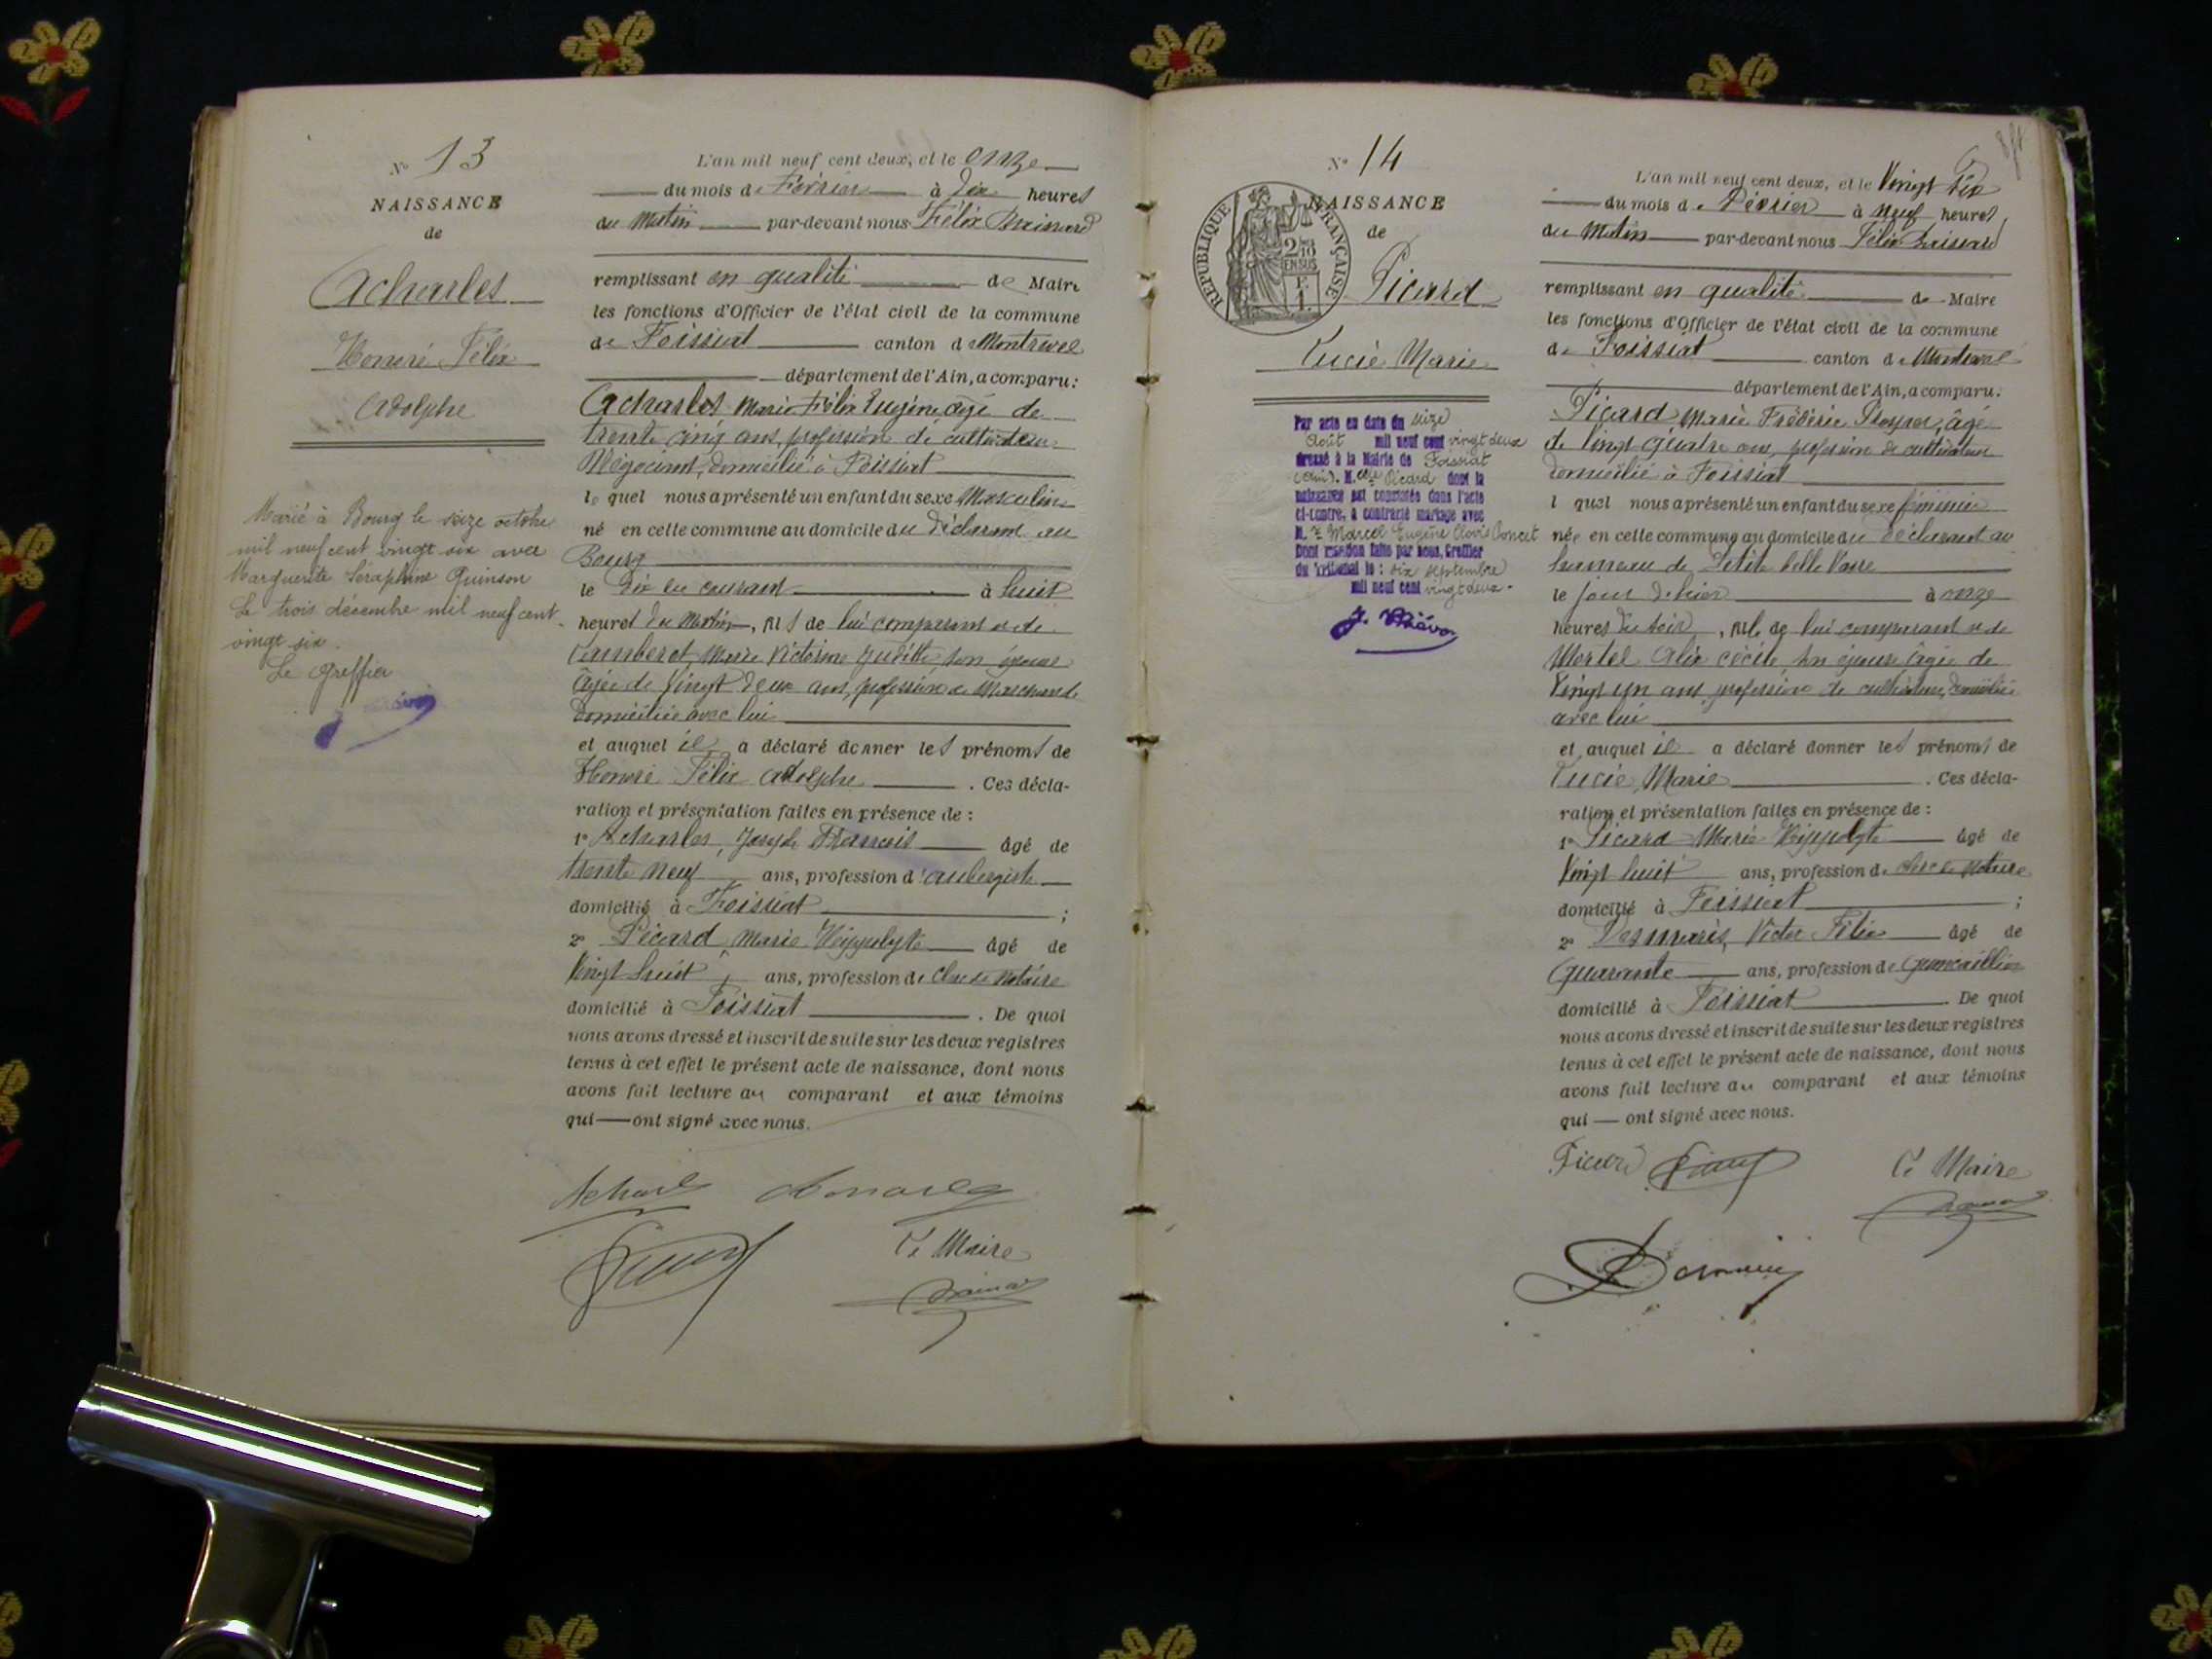 N° 13
NAISSANCE
de
Acharles
Honoré Félix
Adolphe
Marié à Bourg le seize octobre
mil neuf cent vingt six avec
Marguerite Séraphine Quinson
Le trois décembre mil neuf cent
vingt six.
Le Greffier
L'an mil neuf cent deux, et le onze
du mois de Février à dix heures
du Matin par-devant nous Félix
remplissant en qualité de Maire
les fonctions d'Officier de l'état civil de la commune
de Foissiat canton de Montrevel
département de l'Ain, a comparu:
Acharles Marie Félix Eugène âgé de
trente cinq ans, profession de cultivateur
Négociant, domicilié à Foissiat
lequel nous a présenté un enfant du sexe Masculin
né en cette commune au domicile du déclarant au
Bourg
le dix du courant à huit
heures du Matin, fils de lui comparant et de
Marie Victorine Judith son épouse
âgée de vingt deux ans, profession de Marchande
domiciliée avec lui
et auquel il a déclaré donner les prénoms de
Honoré Félix Adolphe. Ces décla-
ration et présentation faites en présence de :
1° Acharles, Joseph François âgé de
trente neuf ans, profession d'aubergiste
domicilié à Foissiat ;
2° Picard Marie Hippolyte âgé de
vingt huit ans, profession de clerc de notaire
domicilié à Foissiat. De quoi
nous avons dressé et inscrit de suite sur les deux registres
tenus à cet effet le présent acte de naissance, dont nous
avons fait lecture au comparant et aux témoins
qui — ont signé avec nous.
Le Maire
N° 14
NAISSANCE
de
REPUBLIQUE FRANÇAISE
2/10
EN SUS
Picard
Lucie Marie
Par acte en date du seize
Août mil neuf cent vingt deux
dressé à la Mairie de Foissiat
(Ain). M.elle Picard dont la
naissance est constatée dans l'acte
ci-contre, a contracté mariage avec
M. r Marcel Eugène Clovis Poncet
Dont mention faite par nous, Greffier
du Tribunal le : six septembre
mil neuf cent vingt deux.
L'an mil neuf cent deux, et le vingt six
du mois de Février à neuf heures
du Matin par-devant nous Félix
remplissant en qualité de Maire
les fonctions d'Officier de l'état civil de la commune
de Foissiat canton de Montrevel
département de l'Ain, a comparu:
Picard Marie Frédéric âgé
de vingt quatre ans, profession de cultivateur
domicilié à Foissiat
l quel nous a présenté un enfant du sexe féminin
née en cette commune au domicile du déclarant au
hameau de Petite belle Vavre
le jour d'hier à onze
heures du soir, fille de lui comparant et de
Alix Cécile son épouse âgée de
vingt un ans, profession de cultivatrice, domiciliée
avec lui
et auquel il a déclaré donner les prénoms de
Lucie Marie. Ces décla-
ration et présentation faites en présence de :
1° Picard Marie Hippolyte âgé de
vingt huit ans, profession de clerc de notaire
domicilié à Foissiat ;
2° Desmaris, Victor Félix âgé de
quarante ans, profession de quincaillier
domicilié à Foissiat. De quoi
nous avons dressé et inscrit de suite sur les deux registres
tenus à cet effet le présent acte de naissance, dont nous
avons fait lecture au comparant et aux témoins
qui — ont signé avec nous.
Picard
Le Maire